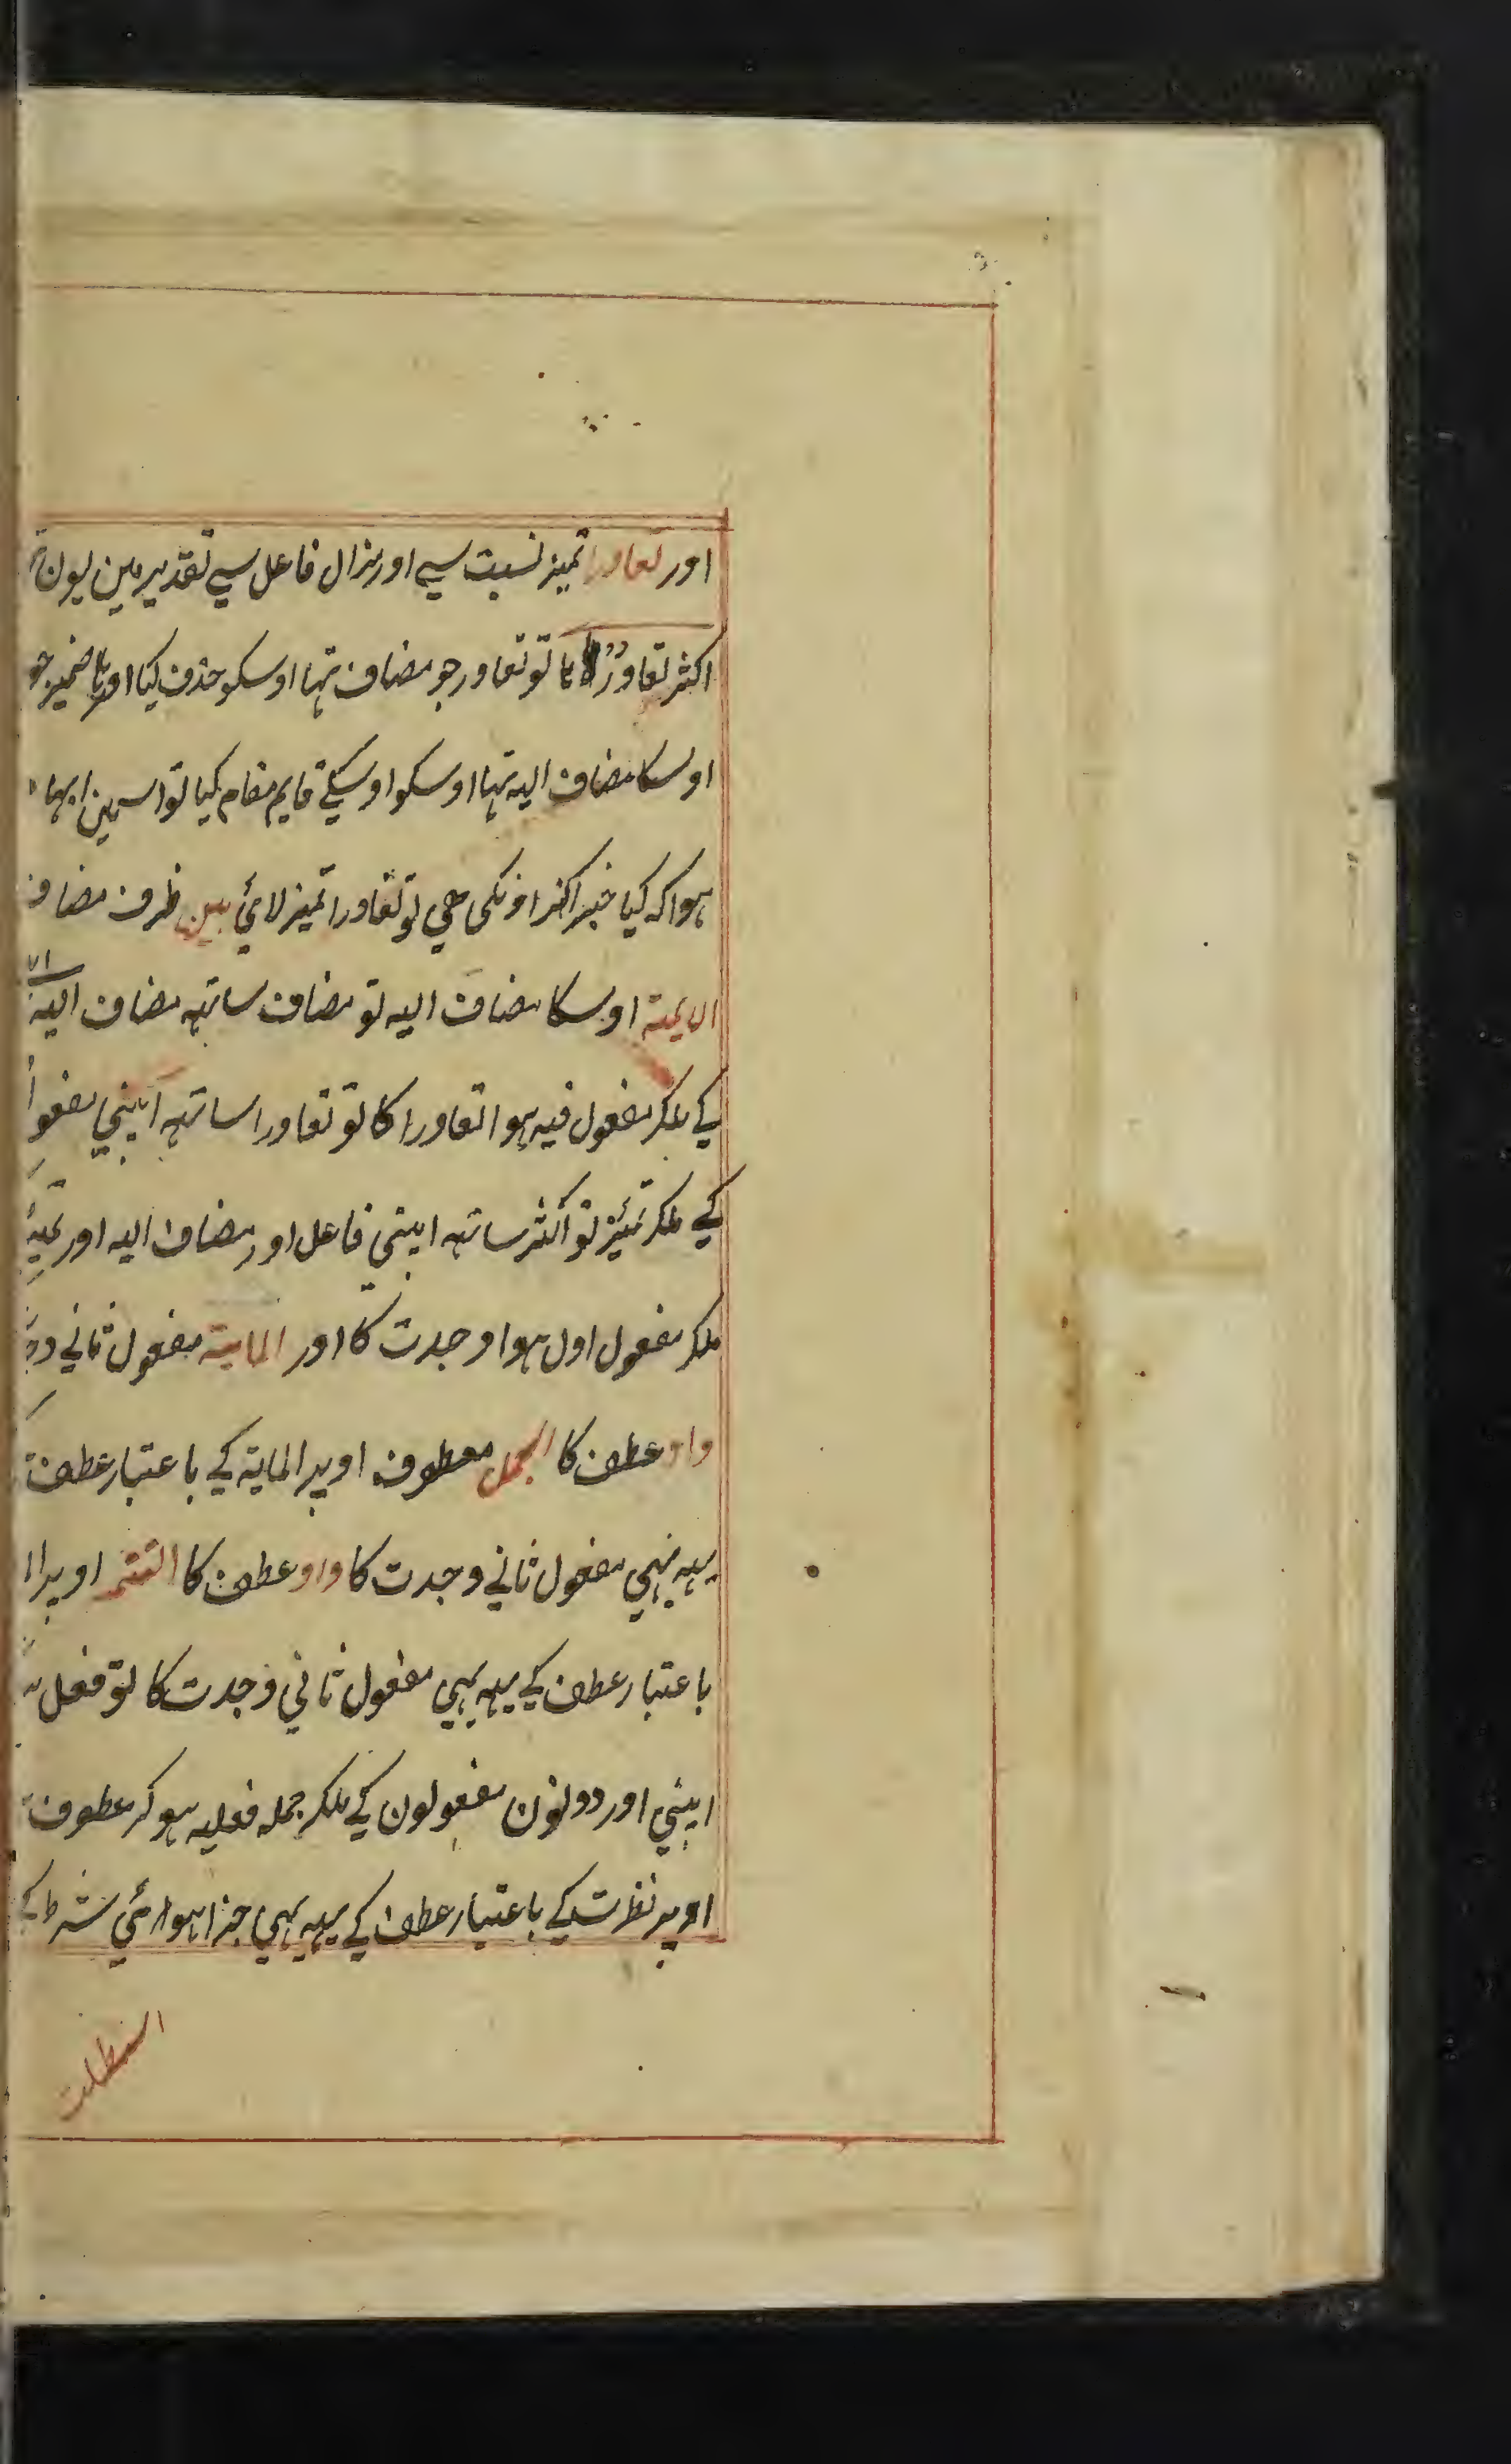 اور تعاورا تمیز نسبت سے اور مزال فاعل سے تقدیر مین یون
اکثر تعاورُہا تو تعاور جو مضاف تہا اوسکو حذف کیا اور ہا ضمیر جو
اوسکا مضاف الیہ تہا اوسکو اوسکے قایم مقام کیا تو اسمین ابہا
ہوا کہ کیا خبر اکثر اونکی ہے تو تعاورا تمیز لائے بین ظرف مضاف
الایمة اوسکا مضاف الیہ تو مضاف ساتہہ مضاف الیہ
کے ملکر مفعول فیہ ہوا تعاورا کا تو تعاورا ساتہہ اپنے مفعو
کے ملکر تمیز تو اکثر ساتہہ اپنے فاعل اور مضاف الیہ اور
ملکر مفعول اول ہوا وجدت کا اور المایة مفعول ثانی
واو عطف کا الجمل معطوف اوپر المایة کے با عتبار عطف
یہہ بہی مفعول ثانی وجدت کا واو عطف کا التتمہ اوپر ا
با عتبار عطف کے یہہ بہی مفعول ثانی وجدت کا تو فعل
اپنے اور دونون مفعولون کے ملکر جملہ فعلیہ ہو کر عطوف
اوپر نظرت کے با عتبار عطف کے یہہ بہی جزا ہوا شرط کے